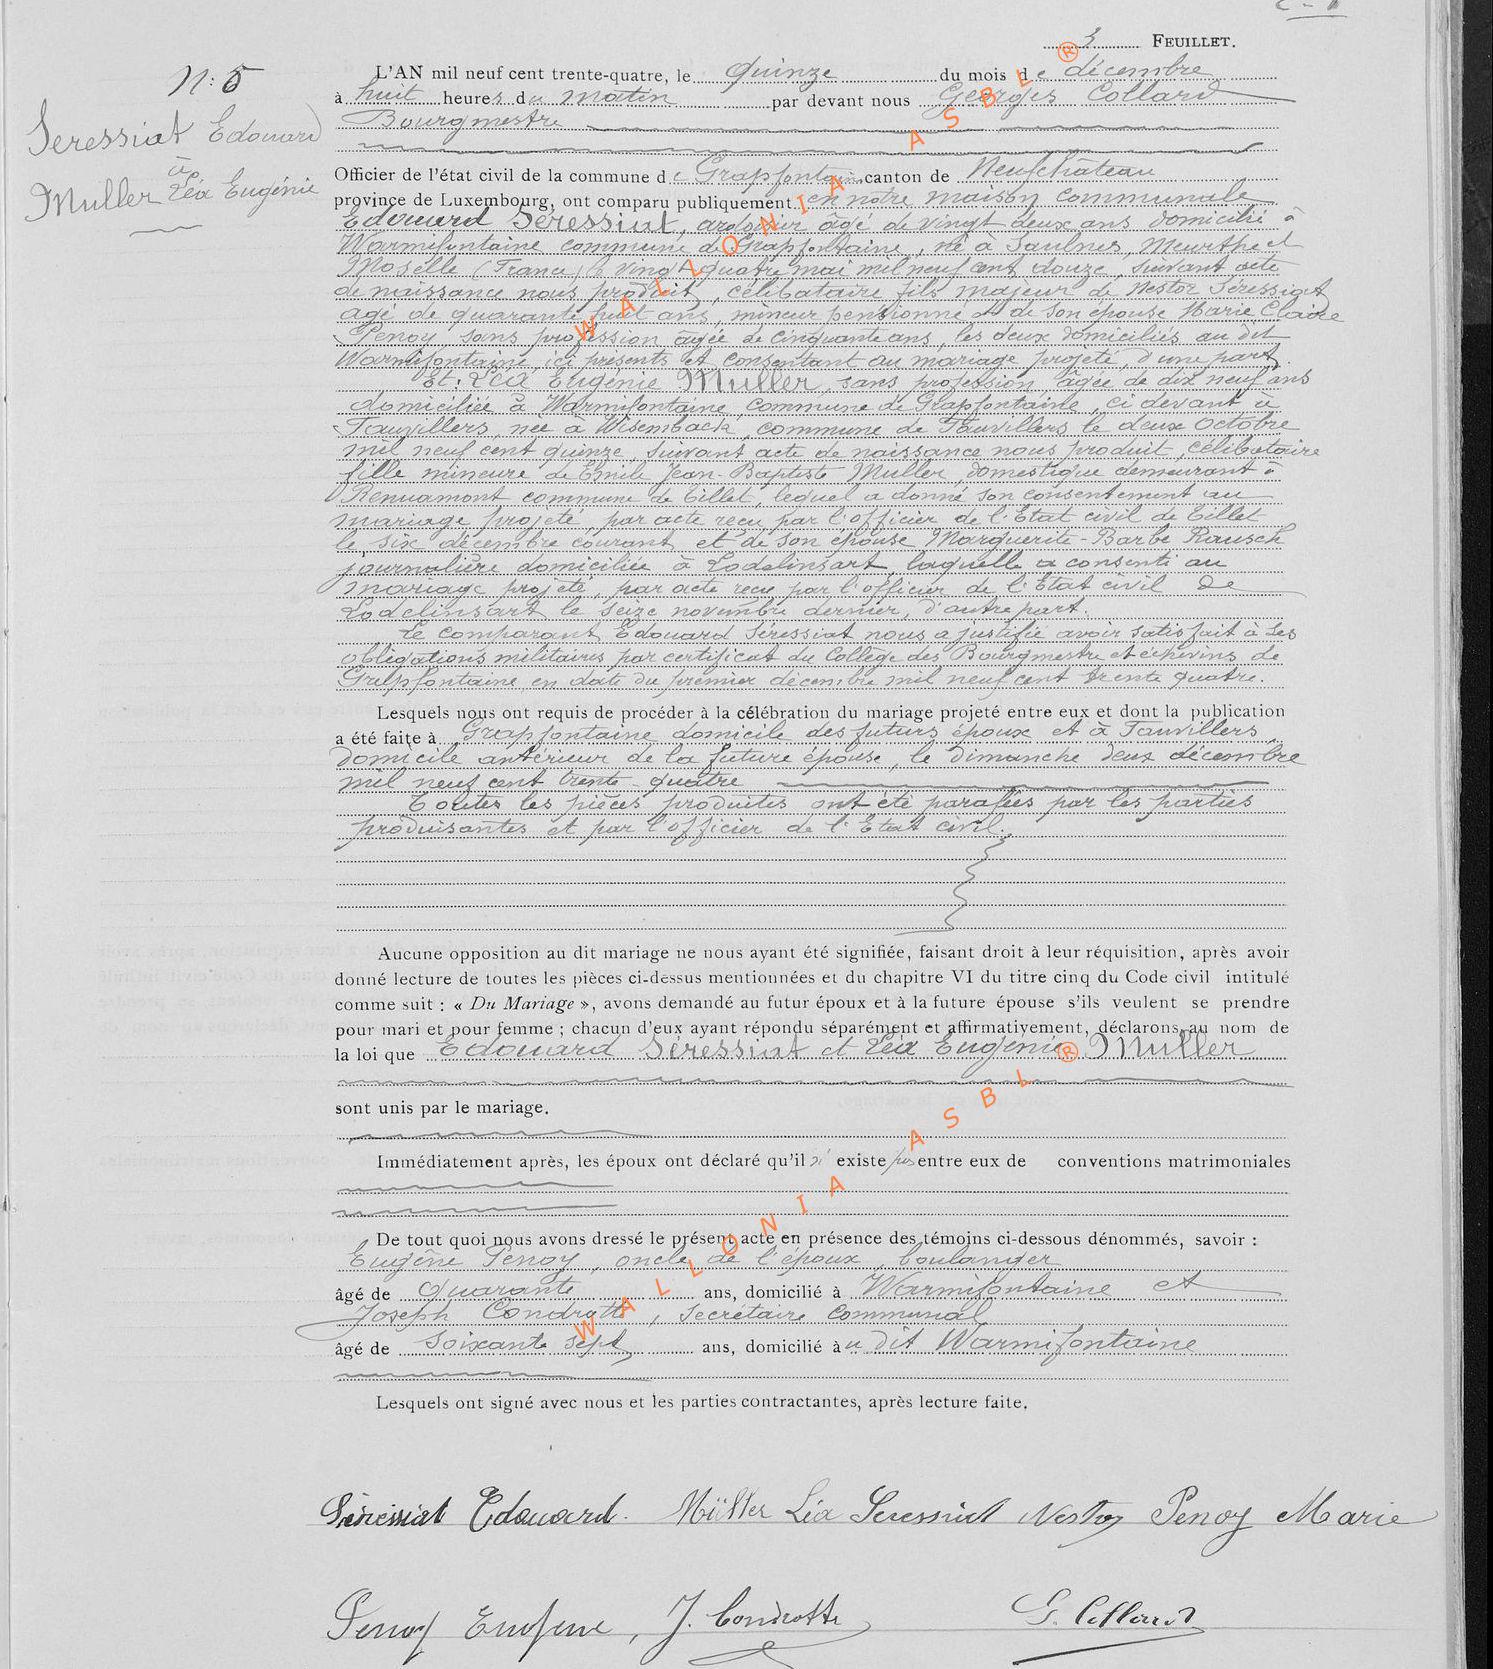 3 FEUILLET.
N: 5
Seressiat Edouard
à
Muller Léa Eugénie
L'AN mil neuf cent trente-quatre, le quinze du mois de décembre
à huit heures du matin par devant nous Georges Collard
Bourgmestre
Officier de l'état civil de la commune de Grapfontaine canton de Neufchâteau
province de Luxembourg, ont comparu publiquement en notre maison communale
Edouard Séressiat, ardoisier âgé de vingt deux ans domicilié à
Warmifontaine commune de Grapfontaine, né à Saulnes, Meurthe et
Moselle (France) le vingt quatre mai mil neuf cent douze, suivant acte
de naissance nous produit, célibataire fils majeur de Nestor Séressiat
âgé de quarante huit ans, mineur pensionné et de son épouse Marie Claire
Penoy sans profession âgée de cinquante ans, les deux domiciliés au dit
Warmifontaine, ici présents et consentant au mariage projeté, d'une part.
Et: Léa Eugénie Muller, sans profession âgée de dix neuf ans
domiciliée à Warmifontaine, commune de Grapfontaine, ci devant à
Fauvillers, née à Wisembach, commune de Fauvillers le deux octobre
mil neuf cent quinze, suivant acte de naissance nous produit, célibataire
fille mineure de Emile Jean-Baptiste Muller, domestique demeurant à
Renuamont commune de Tillet, lequel a donné son consentement au
mariage projeté, par acte reçu par l'officier de l'Etat civil de Tillet
le six décembre courant et de son épouse Marguerite-Barbe Rausch
journalière domiciliée à Lodelinsart, laquelle a consenti au
mariage projeté, par acte reçu par l'officier de l'Etat civil de
Lodelinsart le seize novembre dernier, d'autre part.
Le comparant Edouard Séressiat nous a justifié avoir satisfait à ses
obligations militaires par certificat du Collège des Bourgmestre et échevins de
Grapfontaine en date du premier décembre mil neuf cent trente quatre.
Lesquels nous ont requis de procéder à la célébration du mariage projeté entre eux et dont la publication
a été faite à Grapfontaine domicile des futurs époux et à Fauvillers
domicile antérieur de la future épouse, le dimanche deux décembre
mil neuf cent trente-quatre
Toutes les pièces produites ont été parafées par les parties
produisantes et par l'officier de l'Etat civil.
Aucune opposition au dit mariage ne nous ayant été signifiée, faisant droit à leur réquisition, après avoir
donné lecture de toutes les pièces ci-dessus mentionnées et du chapitre VI du titre cinq du Code civil intitulé
comme suit : « Du Mariage », avons demandé au futur époux et à la future épouse s'ils veulent se prendre
pour mari et pour femme ; chacun d'eux ayant répondu séparément et affirmativement, déclarons au nom de
la loi que Edouard Séressiat et Léa Eugénie Muller
sont unis par le mariage.
Immédiatement après, les époux ont déclaré qu'il n'existe pas entre eux de conventions matrimoniales
De tout quoi nous avons dressé le présent acte en présence des témoins ci-dessous dénommés, savoir :
Eugène Penoy, oncle de l'époux, boulanger
âgé de quarante ans, domicilié à Warmifontaine et
Joseph Condrotte, secrétaire communal
âgé de soixante sept ans, domicilié au dit Warmifontaine
Lesquels ont signé avec nous et les parties contractantes, après lecture faite.
Séressiat Edouard. Müller Léa Seressiat Nestor Penoy Marie
Penoy Eugene, J. Condrotte G. Collard
WALLONIA ASBL ®
WALLONIA ASBL ®